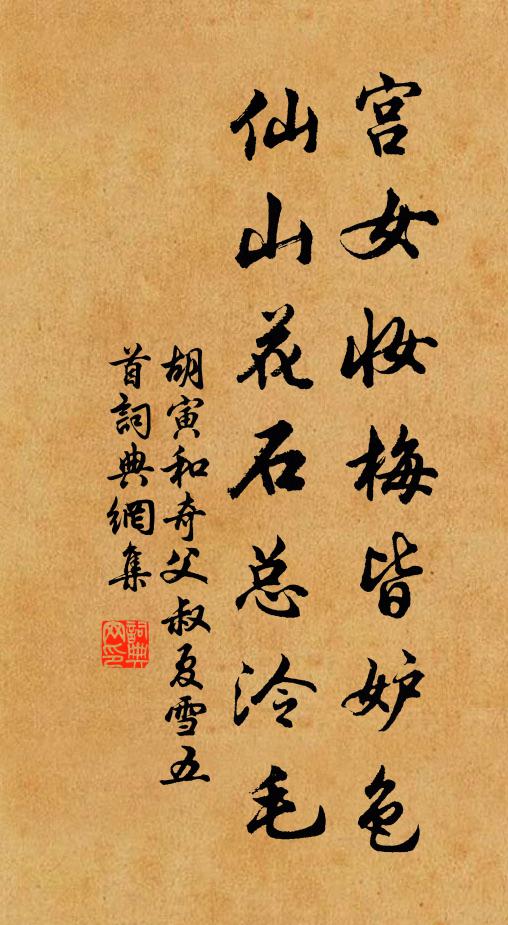 宫女妆梅皆妒色
仙山花石总泠毛
胡寅和奇父叔夏雪五
首詞典網集
詞典網印